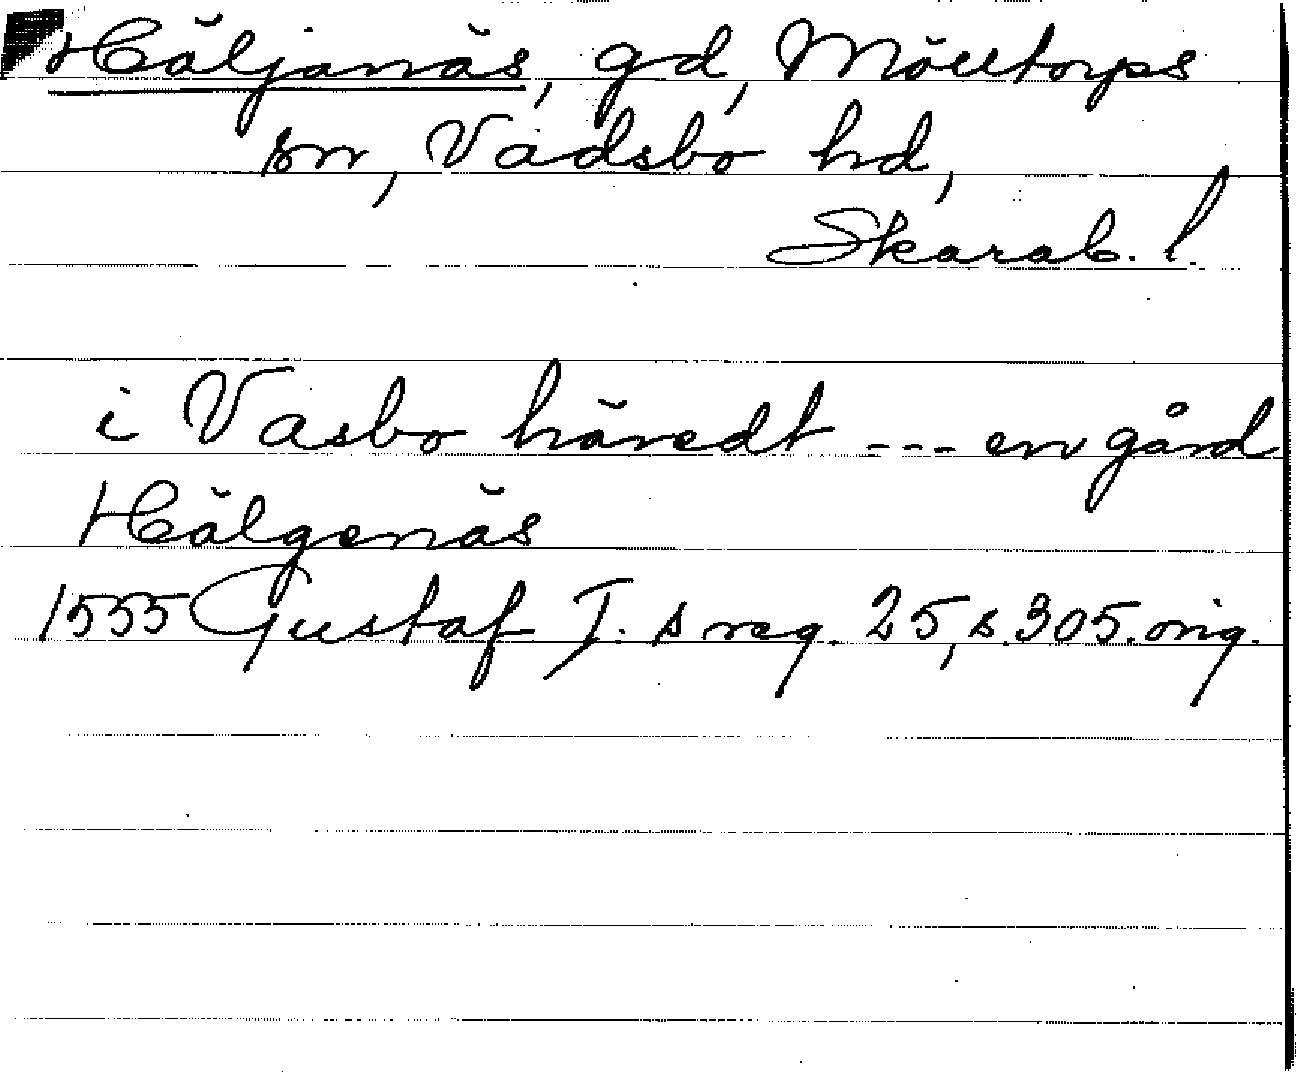 Häljanäs, gd, Möltorps
sn, Vadsbo hd,
Skarab. l.
i Vasbo häredt --- en gård
Hälgenäs
1555 Gustaf I. s reg. 25, s. 305. orig.